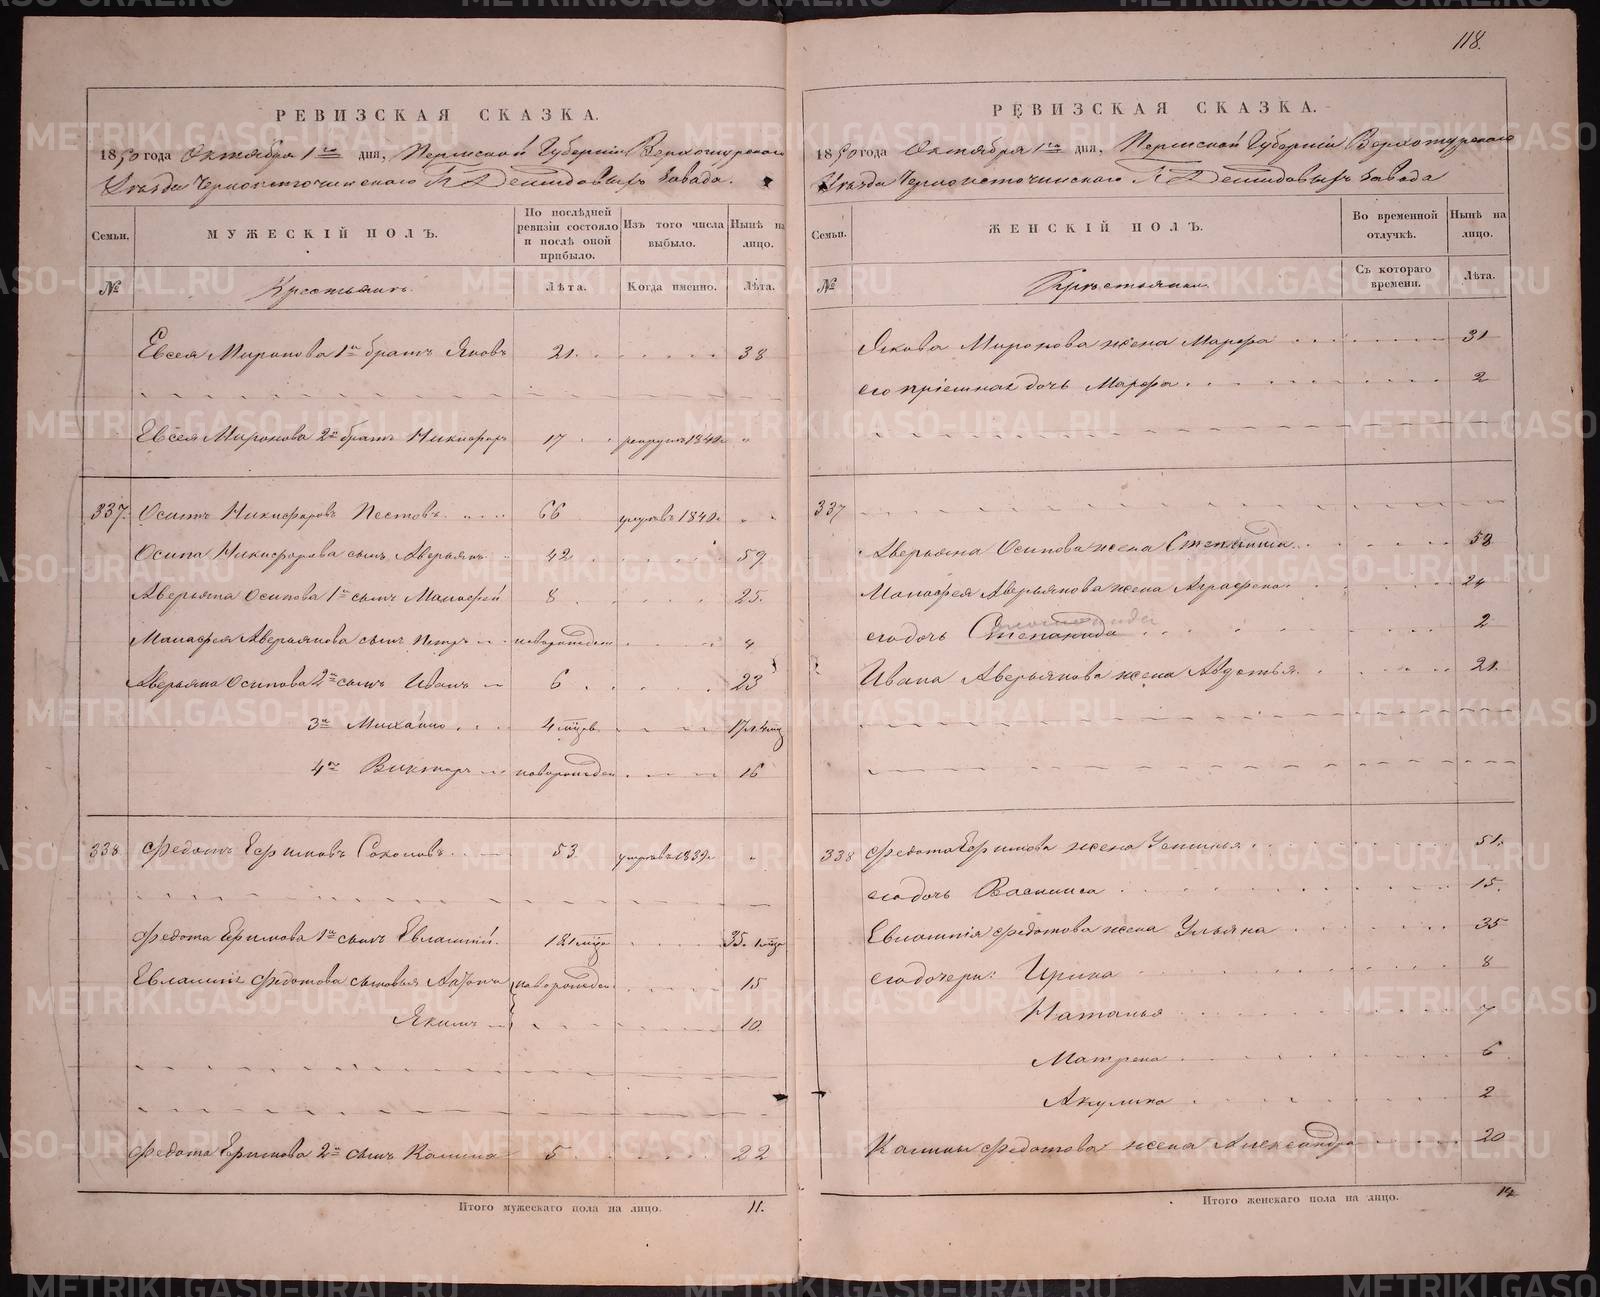 118.
РЕВИЗСКАЯ СКАЗКА.
1850 года Октября 1го дня, Пермской Губернiи Верхотурскаго
Уѣзда Черноисточинскаго Демидовыхъ Завода.
Семьи. МУЖЕСКIЙ ПОЛЪ. По послѣдней ревизiи состояло и послѣ оной прибыло. Изъ того числа выбыло. Нынѣ на лицо.
№ Крестьянъ. Лѣта. Когда именно. Лѣта.
Евсея Миронова 1й братъ Яковъ 21. 38
Евсея Миронова 2й братъ Никифоръ 17 рекрутъ 1840 "
337. Осипъ Никифоровъ Пестовъ 66 умеръ 1840 "
Осипа Никифорова сынъ Аверьянъ 42 59
Аверьяна Осипова 1й сынъ Манасфей 8 25.
Манасфея Аверьянова сынъ Петръ новорожден 4
Аверьяна Осипова 2й сынъ Иванъ 6 23
3й Михайло 4 мцсв. 17л 4мц
4й Викторъ новорожден 16
338 Федотъ Ефимовъ Соколовъ 53. умеръ 1839 "
Федота Ефимова 1й сынъ Евлампiй. 18 1 мцсц 35. 1 мцсц
Евлампiя Федотова сыновья новорожден 15
Якимъ 10.
Федота Ефимова 2й сынъ Калина 5 22
Итого мужескаго пола на лицо. 11.
РЕВИЗСКАЯ СКАЗКА.
1850 года Октября 1го дня, Пермской Губернiи Верхотурскаго
Уѣзда Черноисточинскаго Демидовыхъ Завода
Семьи. ЖЕНСКIЙ ПОЛЪ. Во временной отлучкѣ. Нынѣ на лицо.
№ Крестьянки. Съ котораго времени. Лѣта.
Якова Миронова жена Марфа 31
его прiемная дочь Марфа. 2
337
Аверьяна Осипова жена 58
Манасфея Аверьянова жена Аграфена 24
его дочь Степанида 2
Ивана Аверьянова жена Авдотья. 21.
338 Федота Ефимова жена Устинья 51.
его дочь Василиса 15.
Евлампiя Федотова жена Ульяна 35
его дочери: Ирина 8
Наталья 7
Матрена 6
Акулина 2
Калины Федотова жена Александра 20
Итого женскаго пола на лицо. 14
METRIKI.GASO-URAL.RU